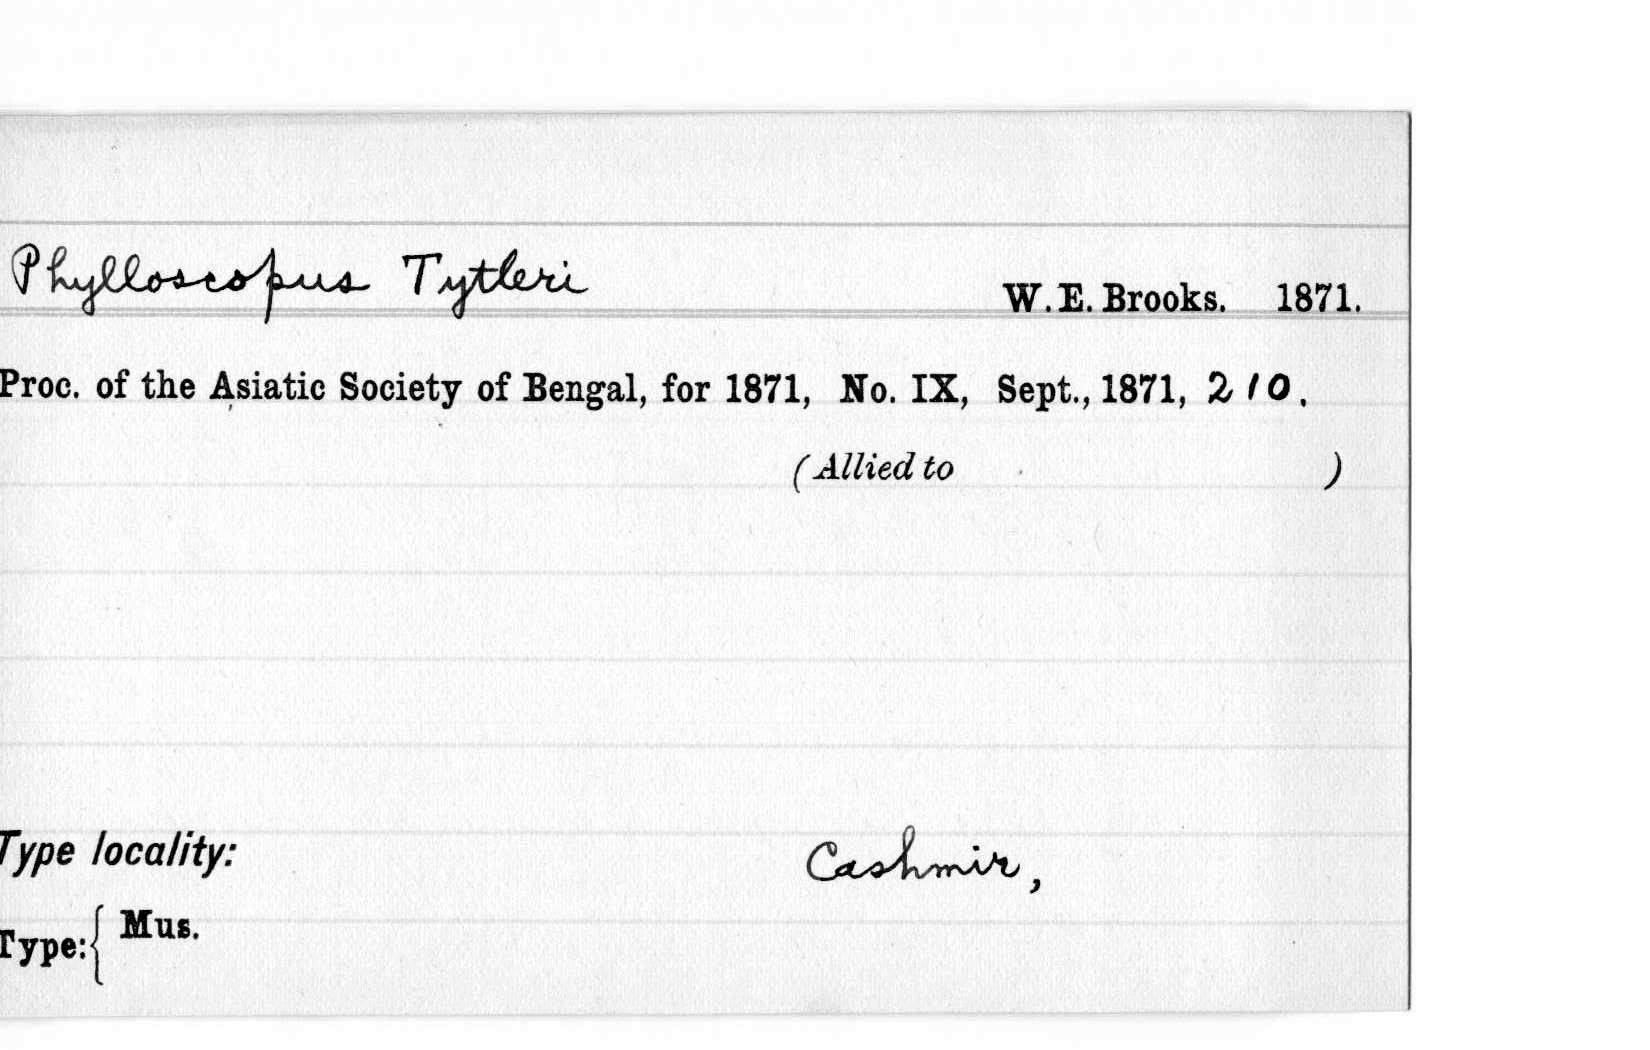 Phylloscopus Tytleri W.E. Brooks. 1871.
Proc. of the Asiatic Society of Bengal, for 1871, No. IX, Sept., 1871, 210.
(Allied to )
Type locality: Cashmir,
Type: { Mus.